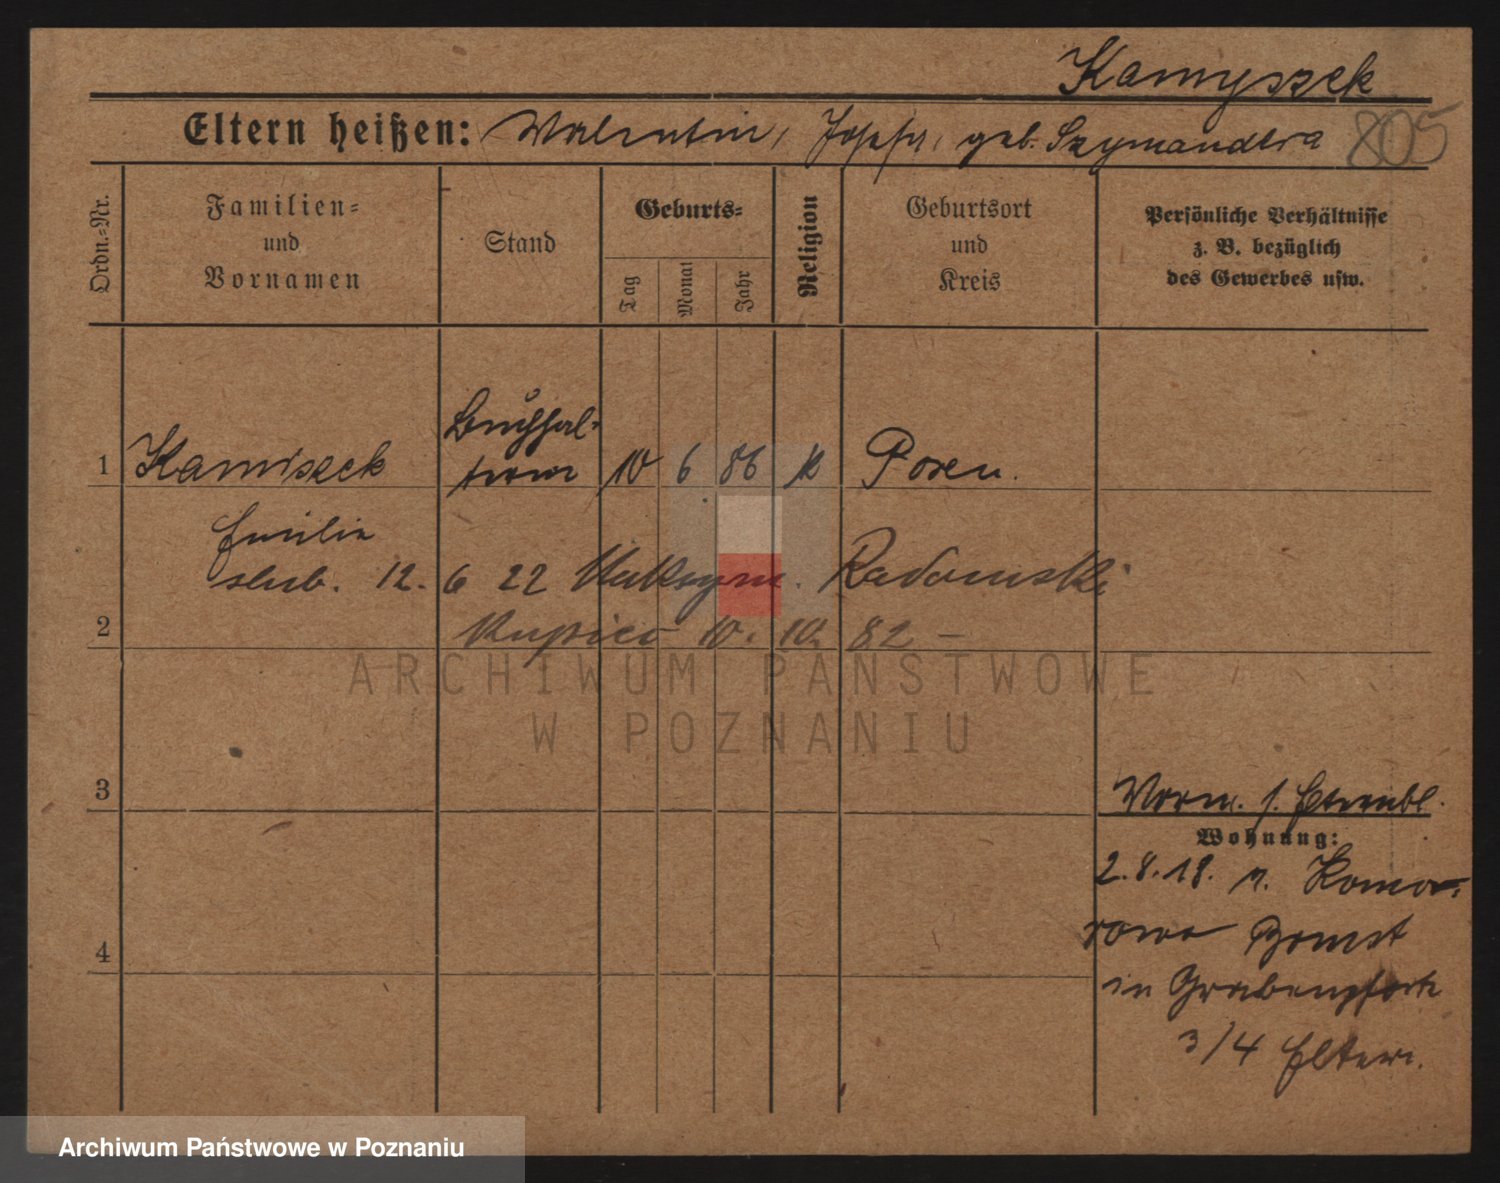 Kamyszek
Eltern heißen: Valentin, Josefa, geb. Szymandera
805
Ordn.-Nr.
Familien-
und
Vornamen
Stand
Geburts-
Tag
Monat
Jahr
Religion
Geburtsort
und
Kreis
Persönliche Verhältnisse
z. B. bezüglich
des Gewerbes usw.
1 Kamiszek Buchhal-
terin 10 6 86 k Posen.
Emilie
slub. 12. 6 22 Maksym. Radomski
2 Kupiec 10. 10. 82 –
3
Vorm. s. Elternbl.
Wohnung:
2.8.18. n. Komo-
rowo Bomst
4
in Grabenpforte
3/4 Eltern.
ARCHIWUM PAŃSTWOWE
W POZNANIU
Archiwum Państwowe w Poznaniu